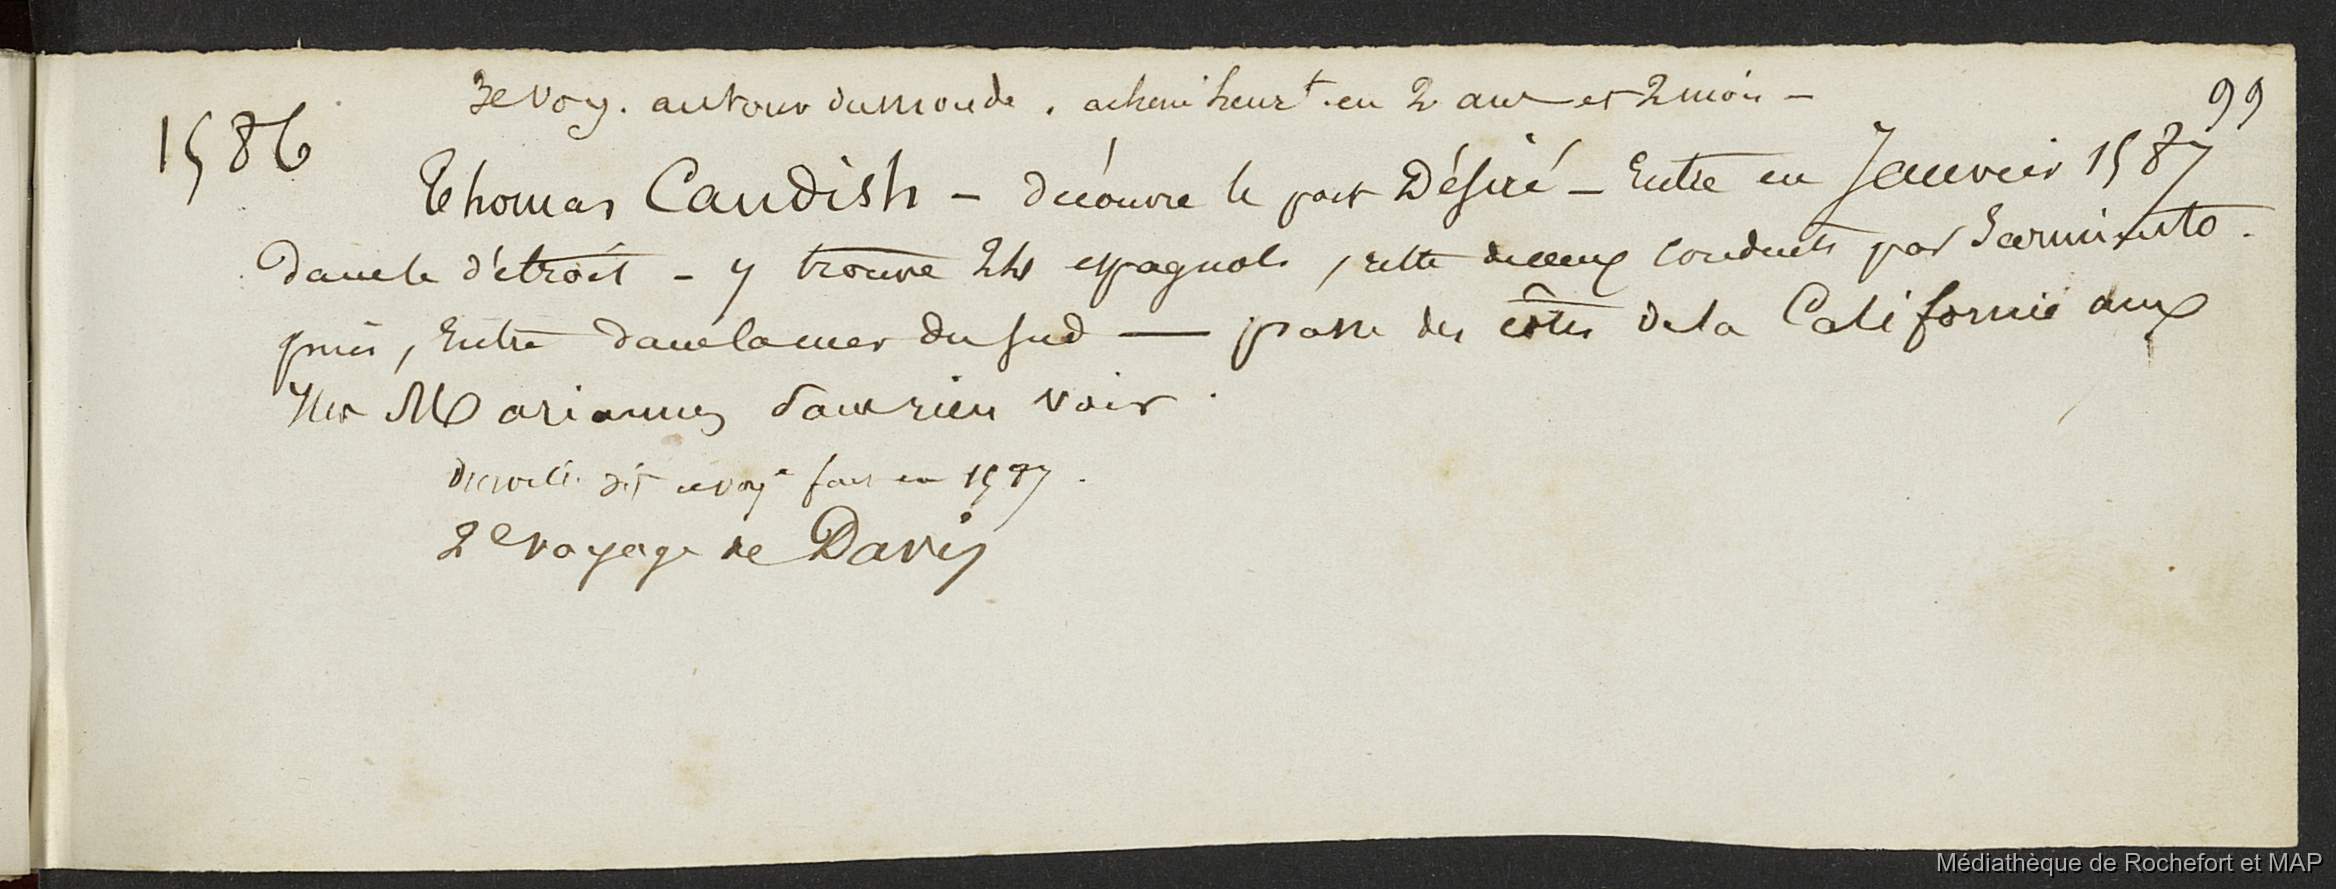 99
3e voy. autour du monde. achevé heurt. en 2 ans et 2 mois —
1586
Thomas Candish — découvre le port Désiré — Entre en Janvier 1587
dans le détroit — y trouve 24 espagnols, reste de ceux conduits par Sarmiento.
puis, Entre dans la mer du sud — passe des côtes de la Californie aux
Iles Mariannes sans rien voir.
dit ce voye fait en 1587.
2e voyage de Davis
Médiathèque de Rochefort et MAP